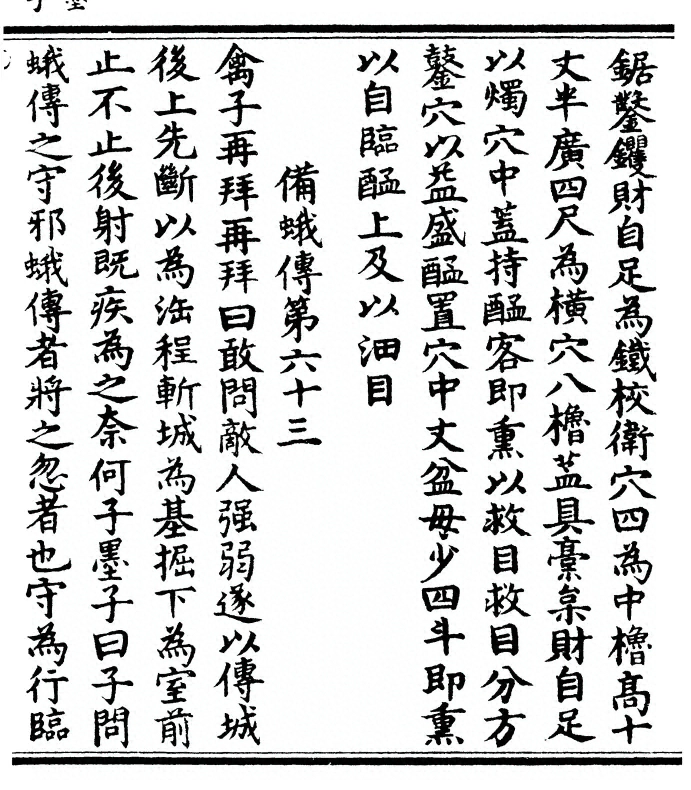 鋸鑿钁財自足為鐵校衛穴四為中櫓髙十
丈半廣四尺為橫穴八櫓葢具稾枲財自足
以燭穴中蓋持醖客即熏以救目救目分方
鑿穴以益盛醖置穴中丈盆毋少四斗即熏
以自臨醖上及以沺目
備蛾傳第六十三
禽子再拜再拜曰敢問敵人强弱遂以傳城
後上先斷以為𣳾程斬城為基掘下為室前
止不止後射既疾為之奈何子墨子曰子問
蛾傳之守邪蛾傳者將之忽者也守為行臨